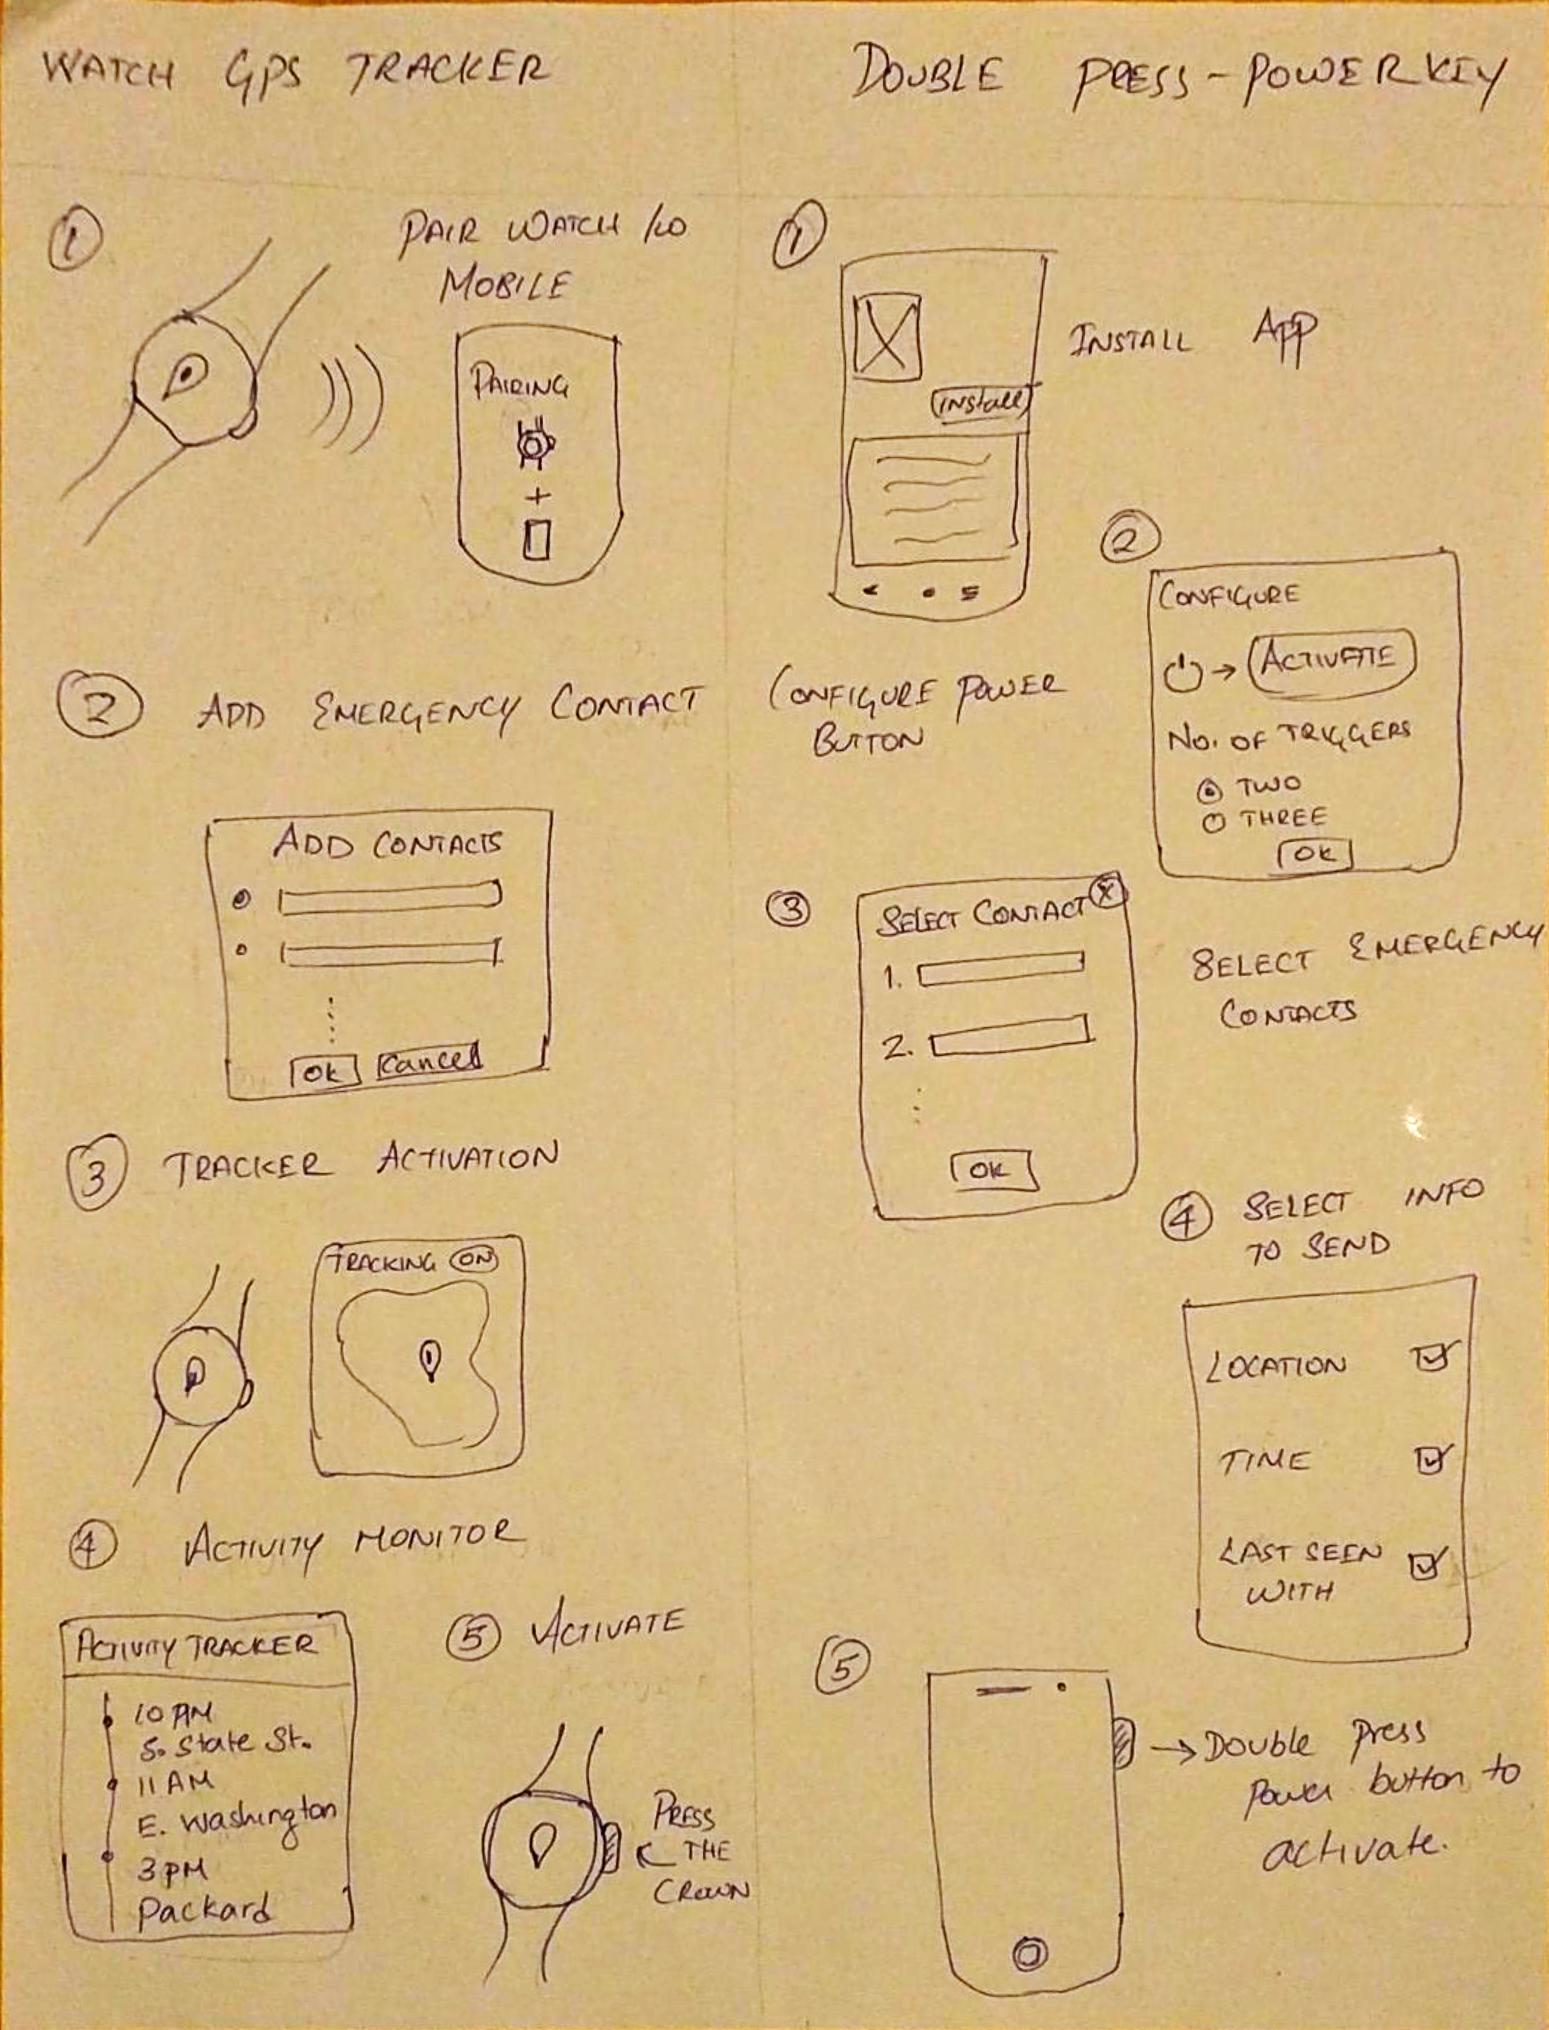 WATCH GPS TRACKER
1
PAIR WATCH W
MOBILE
PAIRING
+
2 ADD EMERGENCY CONTACT
ADD CONTACTS
OK Cancel
3 TRACKER ACTIVATION
TRACKING ON
4 ACTIVITY MONITOR
ACTIVITY TRACKER
10 AM
S. State St.
11 AM
E. Washington
3 PM
Packard
5 ACTIVATE
PRESS
THE
CROWN
DOUBLE PRESS - POWER KEY
1
install
INSTALL APP
2
CONFIGURE POWER
BUTTON
CONFIGURE
→ ACTIVATE
NO. OF TRIGGERS
TWO
THREE
OK
3
SELECT CONTACT X
1.
2.
OK
SELECT EMERGENCY
CONTACTS
4 SELECT INFO
TO SEND
LOCATION
TIME
LAST SEEN
WITH
5
→ Double press
Power button to
activate.